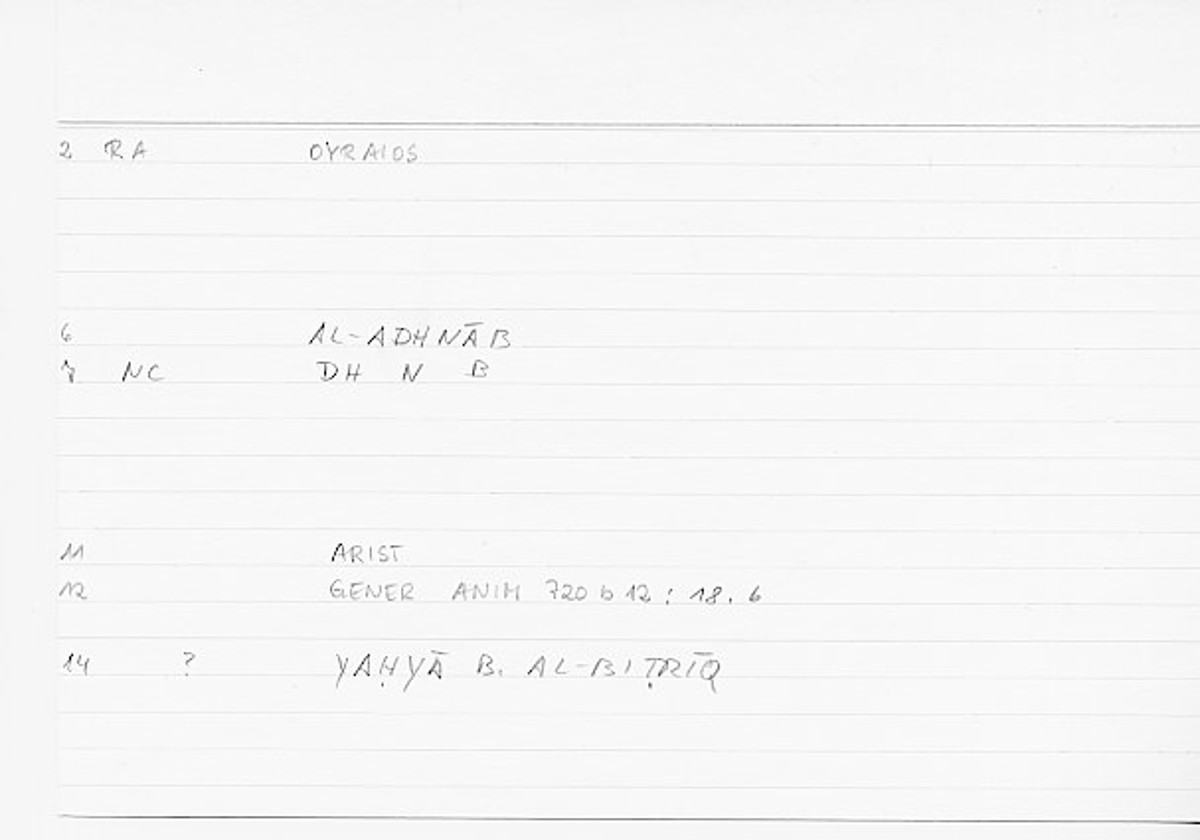 2 RA OYRAIOS
6 AL-ADHNĀB
7 NC DH N B
11 ARIST
12 GENER ANIM 720 b 12 : 18. 6
14 ? YAḤYĀ B. AL-BIṬRĪQ